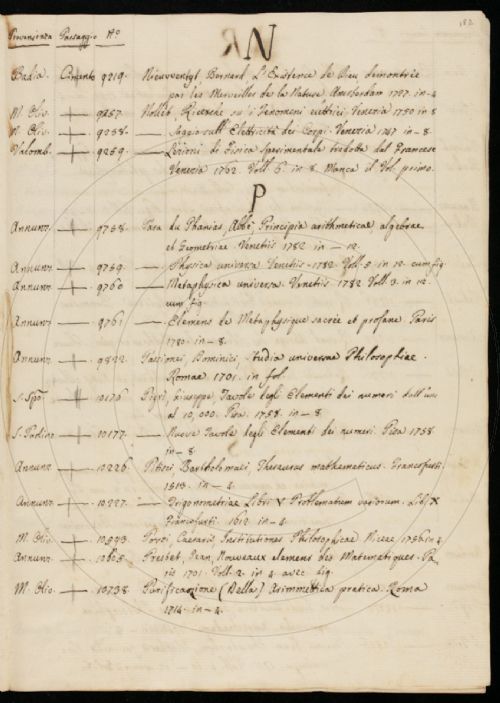 182
Provenienza Passaggio No
N
Badia. Cimento 9219. Nieuwentyt, Bernard, L'Existence de Dieu demontrée
par les Merveilles de la Nature. Amsterdam 1727. in-4
M. Oliv. 9257. Nollet, Ricerche su'i Fenomeni elettrici, Venezia 1750 in 8
M. Oliv. 9258. Saggio sull'Elettricità dei Corpi. Venezia 1747 in-8.
Valomb. 9259. Lezioni di Fisica Sperimentale tradotte dal Francese
Venezia 1762. Voll. 6. in 8. Manca il Vol. primo.
P
Annunz. 9758. du Phanias, Abbé, Principia arithmeticae algebrae
et Geometriae. Venetiis 1782 in-12.
Annunz. 9759. Physica universa Venetiis 1782. Voll. 5. in 12. cum fig.
Annunz. 9760 Metaphysica universa. Venetiis 1782 Voll. 3. in 12.
cum fig.
Annunz. 9761 Elemens de Metaphysique sacrée et profane. Paris
1780. in-8.
Annunz. 9822. Passionei, Dominici, universae Philosophiae.
Romae 1701. in fol.
S. Spo. 10176 Pigri, Giuseppe, Tavole degli Elementi dei numeri dall'uno
al 10,000. Pisa. 1758. in-8
S. Paolino 10177. Nuove Tavole degli Elementi dei numeri. Pisa 1758
in-8.
Annunz. 10226. Pitisci, Bartholomaei, Thesaurus mathematicus. Francofurti.
1613. in-4.
Annunz. 10227. Trigonometriae Libri V Problematum variorum. Lib. X
Francofurti. 1612 in-4.
M. Oliv. 10593. Caesaris Institutiones Philosophicae Nicae, 1756 in 4
Annunz. 10605. Prestet, Jean, Nouveaux elemens des Matematiques. Pa-
ris 1701. Voll. 2. in 4. avec fig.
M. Oliv. 10738. Purificazione (Dalla) Arimmetica pratica. Roma
1714. in-4.